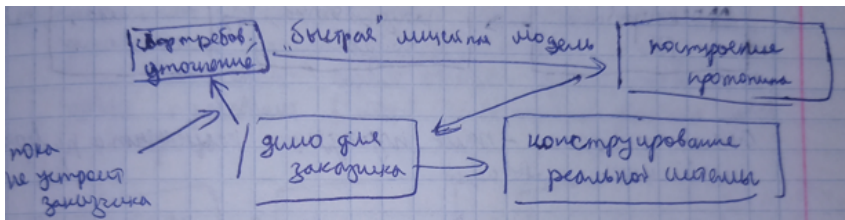 сбор требов,
уточнение
"быстрая" модель
построение
прототипа
демо для
заказчика
конструирование
реальной системы
пока
не устроит
заказчика